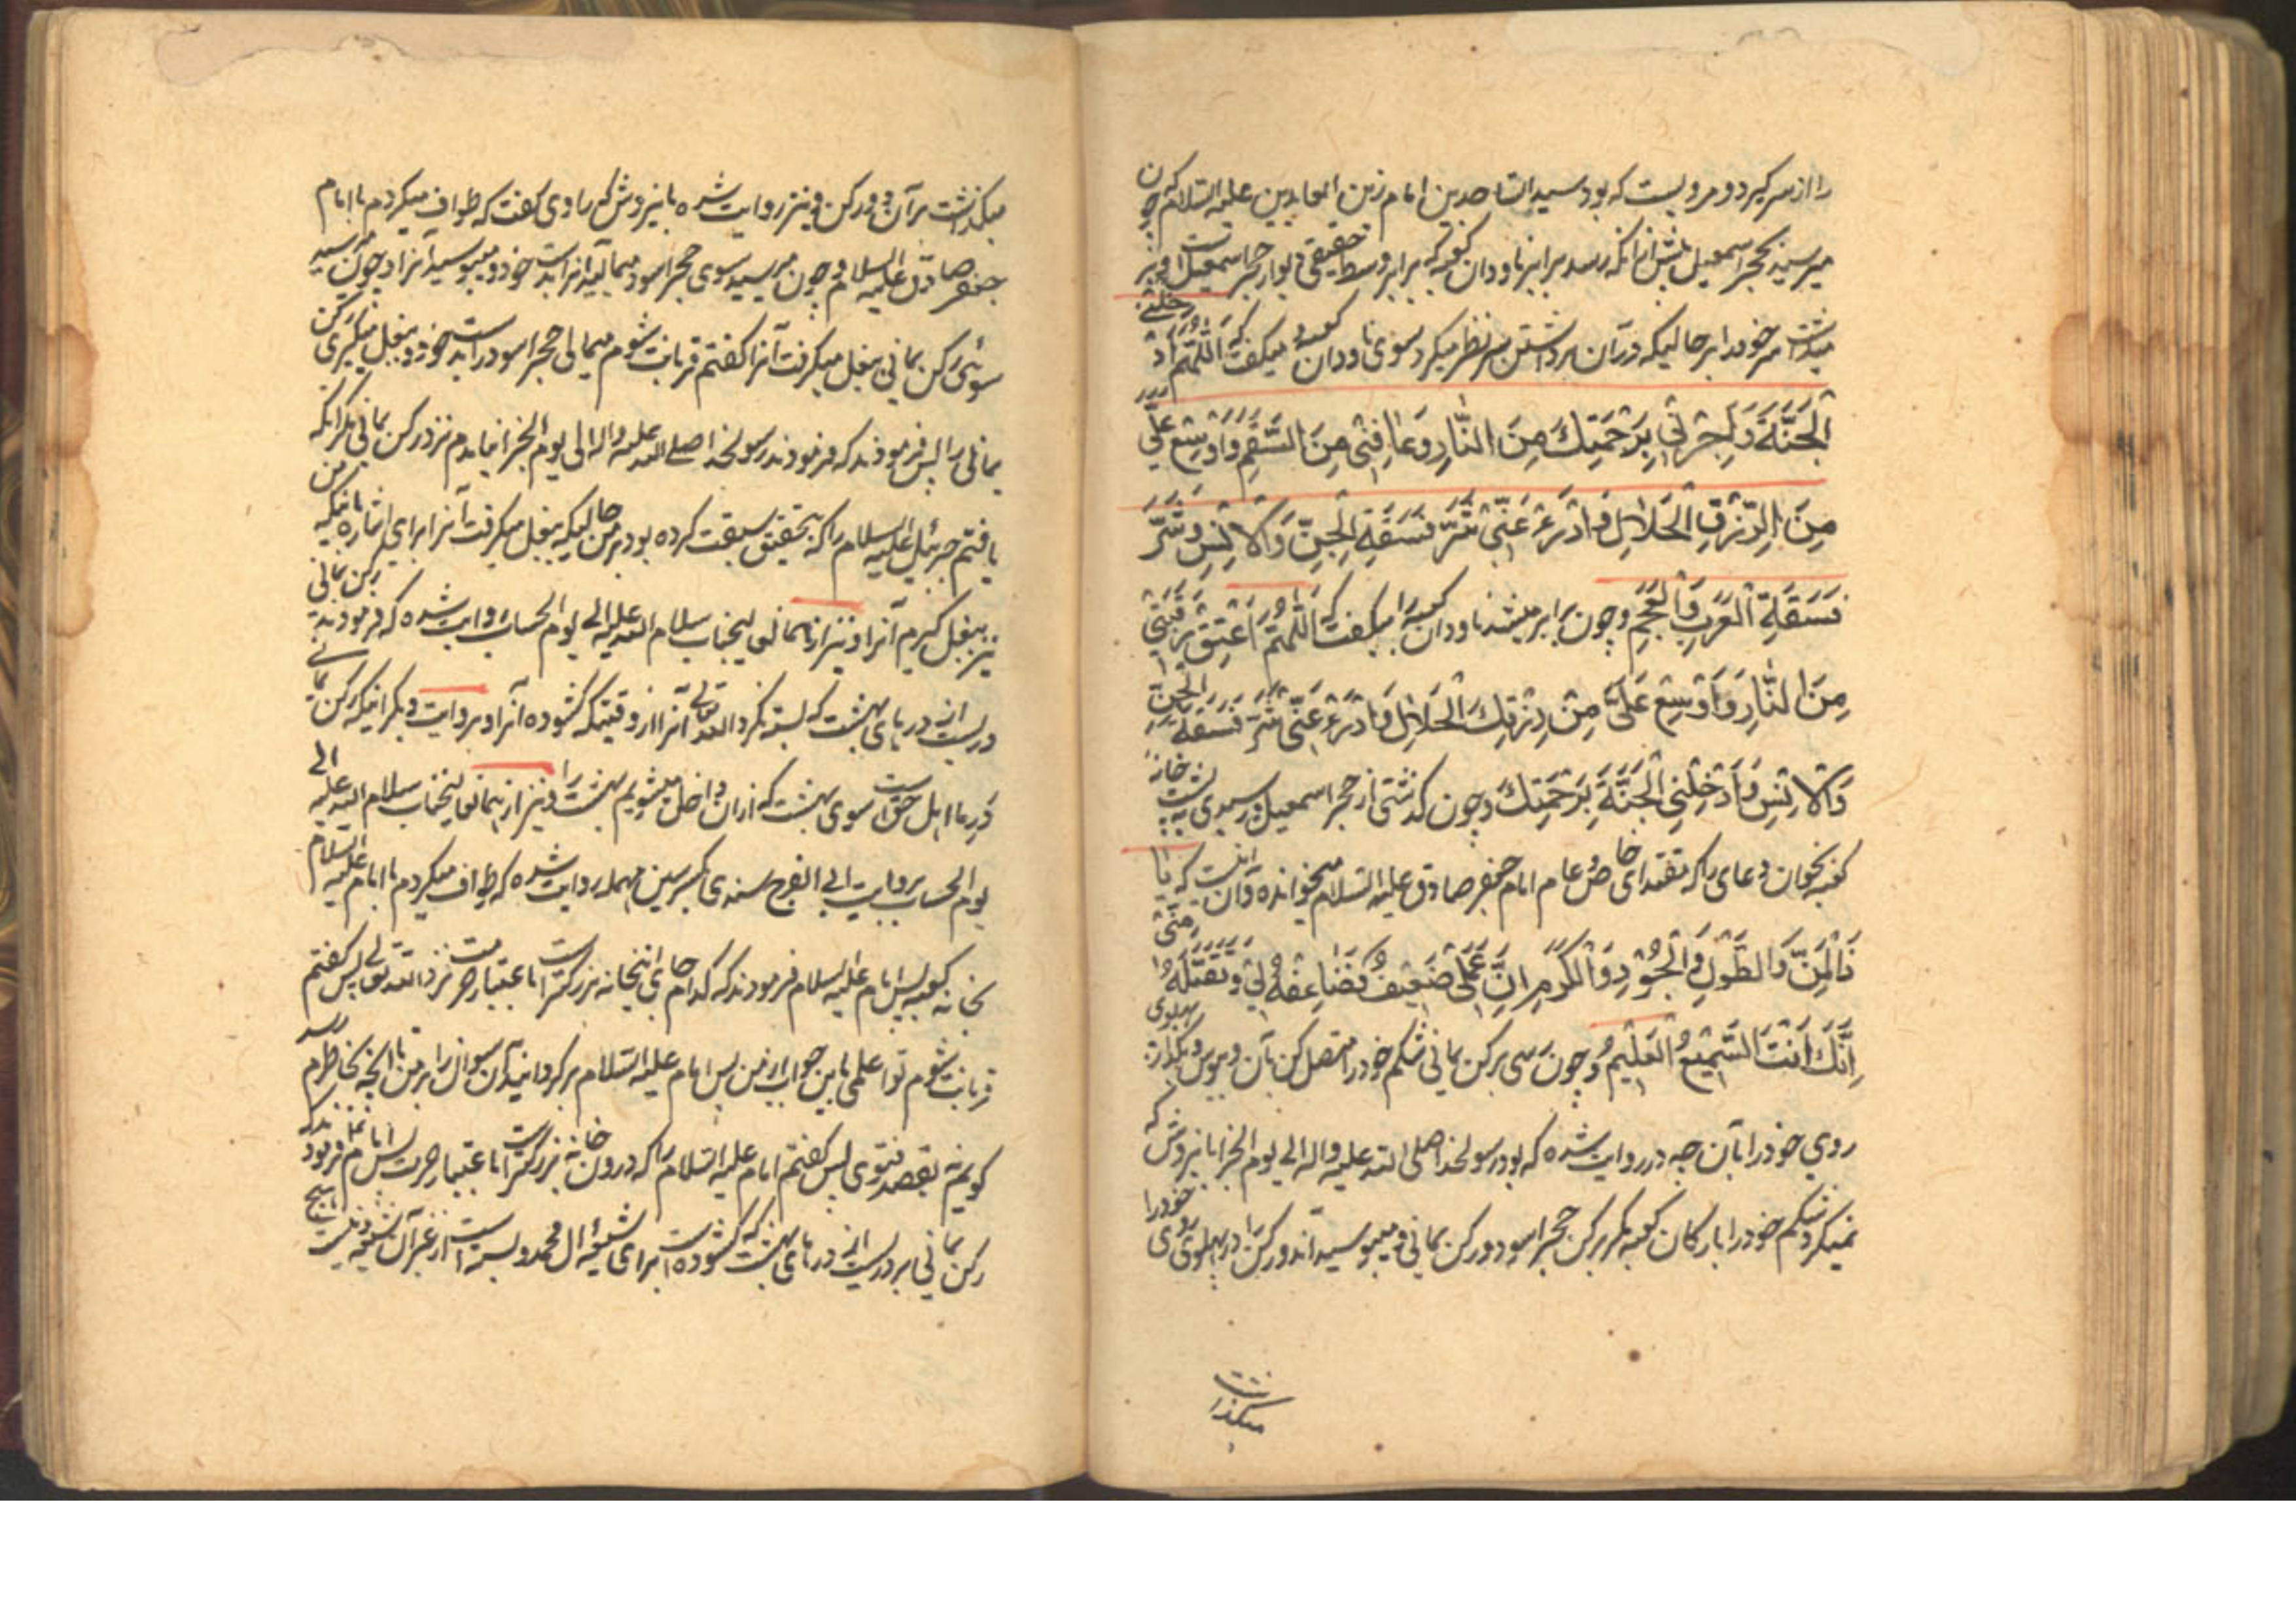 را از سر گیرد و مرویست که بود سید الساجدین امام زین العابدین علیه السلام که چون
میرسید بحجر اسمعیل پیش از انکه رسد برابر ناودان کعبه که برابر وسط حقیقی دیوار حجر اسمعیل است بر
میداشت سر خود را بر حالیکه در آن برداشتن سر نظر میکرد سوی ناودان کعبه و میگفت که اَللّٰهُمَّ اَدْخِلْنِی
الْجَنَّةَ وَاَجِرْنِی بِرَحْمَتِكَ مِنَ النَّارِ وَعَافِنِی مِنَ السُّقْمِ وَاَوْسِعْ عَلَیَّ
مِنَ الرِّزْقِ الْحَلَالِ وَادْرَءْ عَنِّی شَرَّ فَسَقَةِ الْجِنِّ وَالْاِنْسِ وَشَرَّ
فَسَقَةِ الْعَرَبِ وَالْعَجَمِ و چون برابر میشد ناودان کعبه را میگفت که اَللّٰهُمَّ اَعْتِقْ رَقَبَتِی
مِنَ النَّارِ وَاَوْسِعْ عَلَیَّ مِنْ رِزْقِكَ الْحَلَالِ وَادْرَءْ عَنِّی شَرَّ فَسَقَةِ الْجِنِّ
وَالْاِنْسِ وَاَدْخِلْنِی الْجَنَّةَ بِرَحْمَتِكَ و چون گذشتی از حجر اسمعیل و رسیدی به پشت خانه
کعبه بخوان دعای را که مقتدای خاص و عام امام جعفر صادق علیه السلام میخوانده و آن اینست که یا
ذَالْمَنِّ وَالطَّوْلِ وَالْجُوْدِ وَالْكَرَمِ اِنَّ عَمَلِی ضَعِیْفٌ فَضَاعِفْهُ لِی وَتَقَبَّلْهُ مِنِّی
اِنَّكَ اَنْتَ السَّمِیْعُ الْعَلِیْمُ و چون رسی برکن یمانی شکم خود را متصل کن بآن و ببوس و بگذار پهلوی
روی خود را بآن چه در روایت شده که بود رسولخدا صلی الله علیه و اله الی یوم الجزا باینروش که
نمیکرد شکم خود را بارکان کعبه مگر برکن حجر اسود و رکن یمانی و میبوسید آندو رکن را و پهلوی روی خود را
میگذاشت
میگذاشت بر آن دو رکن و نیز روایت شده باینروش که راوی گفت که طواف میکردم با امام
جعفر صادق علیه السلام و چون میرسید سوی حجر اسود میمالید انرا بدست خود و میبوسید آنرا و چون میرسید
سوی رکن یمانی بغل میگرفت آنرا گفتم قربانت شوم میمالی حجر اسود را بدست خود و بغل میگیری رکن
یمانی را پس فرمودند که فرمودند رسولخدا صلی الله علیه و اله الی یوم الجزا نیامدم نزد رکن یمانی مگر انکه
یافتم جبرئیل علیه السلام را که بتحقیق سبقت کرده بود بر من حالیکه بغل میگرفت آنرا برای اشاره باینکه من
نیز بغل گیرم آنرا و نیز از همانعالیجناب سلام الله علیه الی یوم الحساب روایت شده که فرمودند رکن یمانی
دریست از درهای بهشت که بسته نکرد الله تعالی آنرا از وقتیکه گشوده آنرا و بروایت دیگر اینکه رکن یمانی
در ما اهل حق است سوی بهشت که ازان داخل میشویم بهشت را و نیز از همانعالیجناب سلام الله علیه الی
یوم الحساب بروایت ابی الفرج سندی بکسر سین مهمله روایت شده که طواف میکردم با امام علیه السلام
بخانه کعبه پس امام علیه السلام فرمودند که کدام جای اینخانه بزرگتر است باعتبار حرمت نزد الله تعالی پس گفتم
قربانت شوم تو اعلمی باین جواب از من پس امام علیه السلام برگردانیدند آن سوال را بر من تا انچه بخاطرم رسد
گویم نه بقصد فتوی پس گفتم امام علیه السلام را که درون خانه بزرگتر است باعتبار حرمت پس امام فرمودند که
رکن یمانی بر دریست از درهای بهشت که گشوده است برای شیعه ال محمد و بسته است از غیر آن شیعه و نیست هیچ